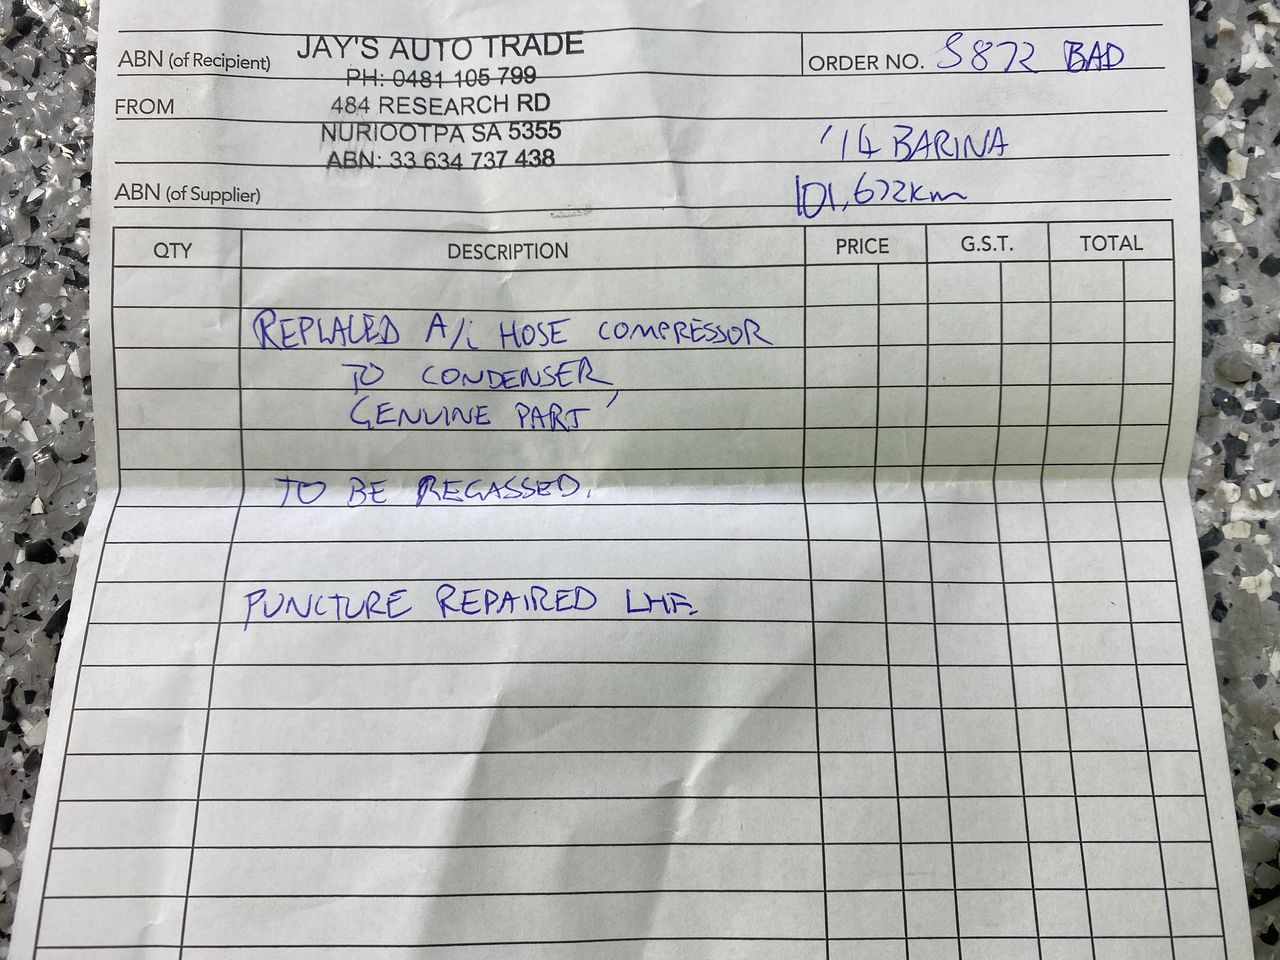 ABN (of Recipient) JAY'S AUTO TRADE ORDER NO. S872 BAD
PH: 0481 105 799
FROM 484 RESEARCH RD
NURIOOTPA SA 5355 '14 BARINA
ABN: 33 634 737 438
ABN (of Supplier) 101,672km
QTY DESCRIPTION PRICE G.S.T. TOTAL
REPLACED A/C HOSE COMPRESSOR
TO CONDENSER,
GENUINE PART
TO BE REGASSED.
PUNCTURE REPAIRED LHF.